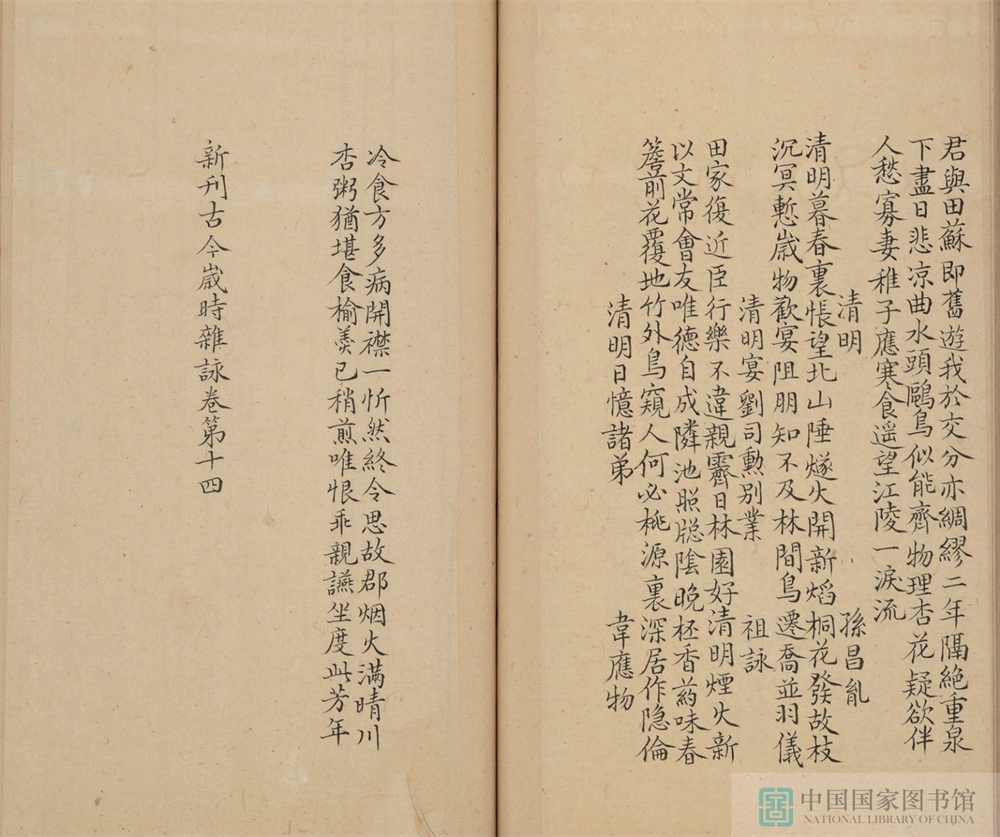 君與田蘇即舊遊我於交分亦綢繆二年隔絶重泉
下盡日悲凉曲水頭鷗鳥似能齊物理杏花疑欲伴
人愁寡妻稚子應寒食遥望江陵一淚流
清明 孫昌胤
清明暮春裏悵望北山陲燧火開新焰桐花發故枝
沉冥慙歲物歡宴阻朋知不及林間鳥遷喬並羽儀
清明宴劉司勲別業 祖詠
田家復近臣行樂不違親霽日林園好清明煙火新
以文常會友唯德自成隣池照牕陰晚杯香葯味春
簷前花覆地竹外鳥窺人何必桃源裏深居作隐倫
清明日憶諸弟 韋應物
冷食方多病開襟一忻然終令思故郡烟火满晴川
杏粥猶堪食榆羹已稍煎唯恨乖親讌坐度此芳年
新刊古今歲時雜詠卷第十四
中国国家图书馆
NATIONAL LIBRARY OF CHINA